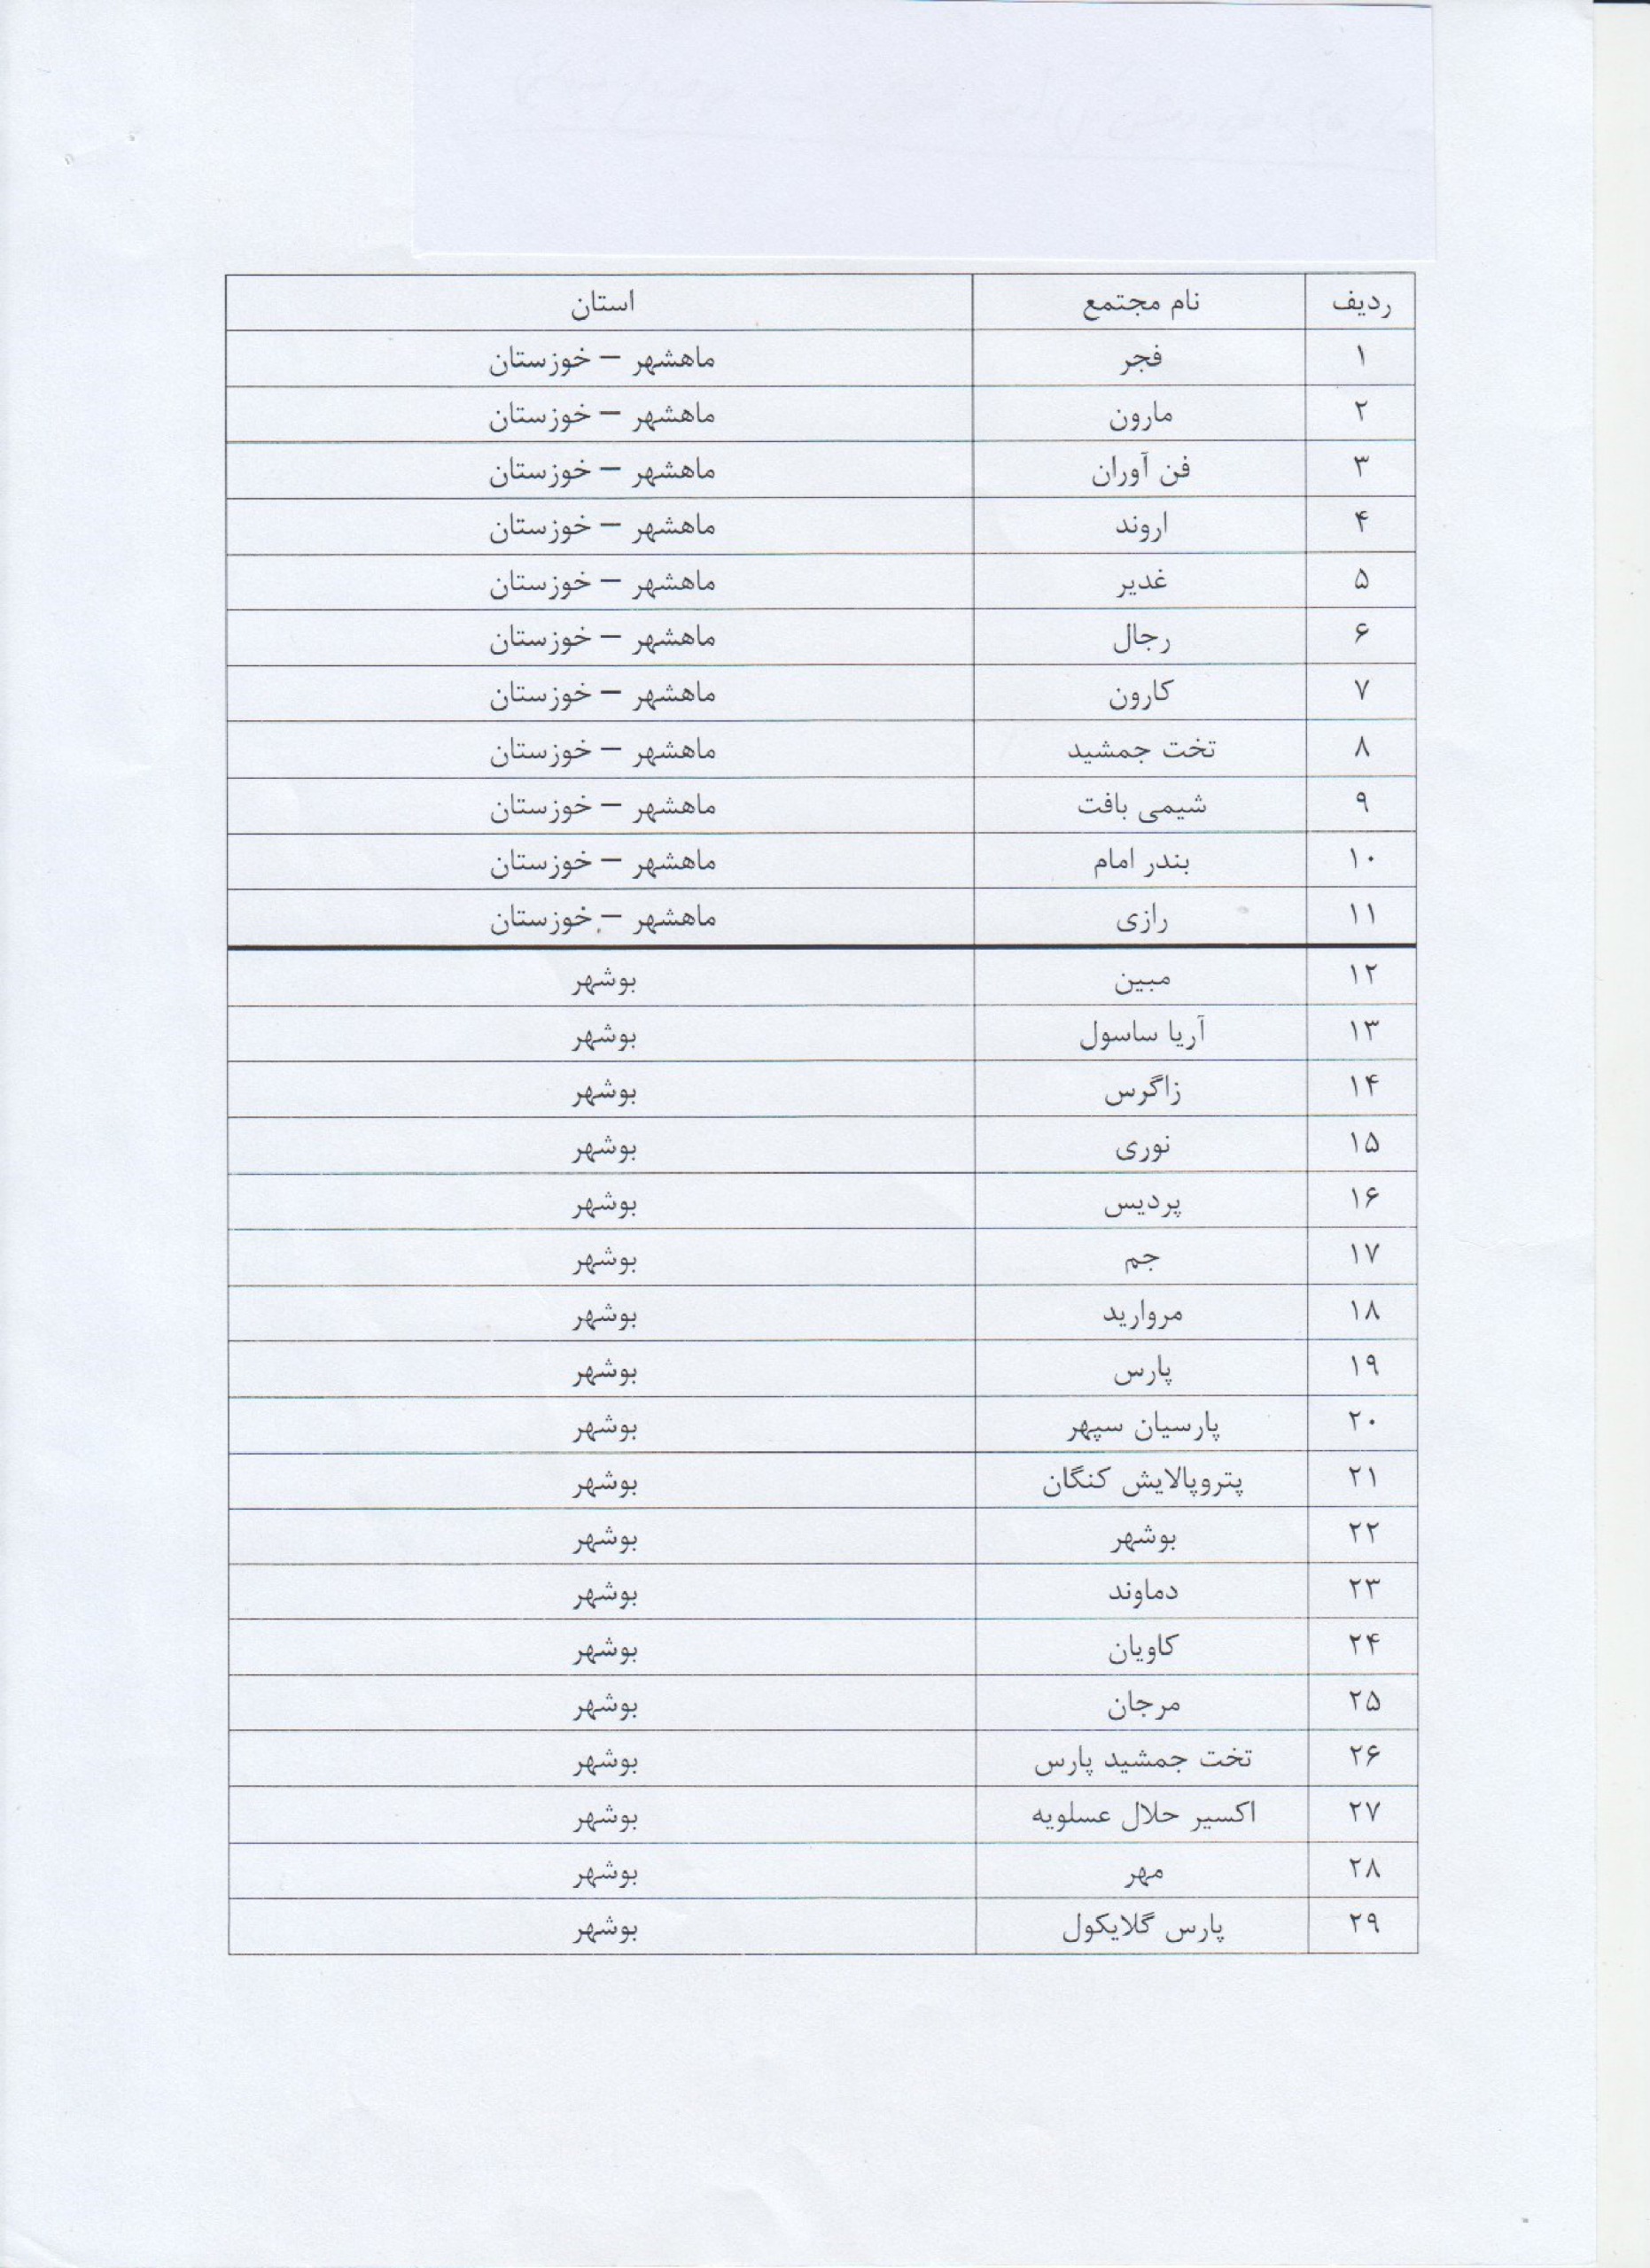 ردیف نام مجتمع استان
۱ فجر ماهشهر – خوزستان
۲ مارون ماهشهر – خوزستان
۳ فن آوران ماهشهر – خوزستان
۴ اروند ماهشهر – خوزستان
۵ غدیر ماهشهر – خوزستان
۶ رجال ماهشهر – خوزستان
۷ کارون ماهشهر – خوزستان
۸ تخت جمشید ماهشهر – خوزستان
۹ شیمی بافت ماهشهر – خوزستان
۱۰ بندر امام ماهشهر – خوزستان
۱۱ رازی ماهشهر – خوزستان
۱۲ مبین بوشهر
۱۳ آریا ساسول بوشهر
۱۴ زاگرس بوشهر
۱۵ نوری بوشهر
۱۶ پردیس بوشهر
۱۷ جم بوشهر
۱۸ مروارید بوشهر
۱۹ پارس بوشهر
۲۰ پارسیان سپهر بوشهر
۲۱ پتروپالایش کنگان بوشهر
۲۲ بوشهر بوشهر
۲۳ دماوند بوشهر
۲۴ کاویان بوشهر
۲۵ مرجان بوشهر
۲۶ تخت جمشید پارس بوشهر
۲۷ اکسیر حلال عسلویه بوشهر
۲۸ مهر بوشهر
۲۹ پارس گلایکول بوشهر